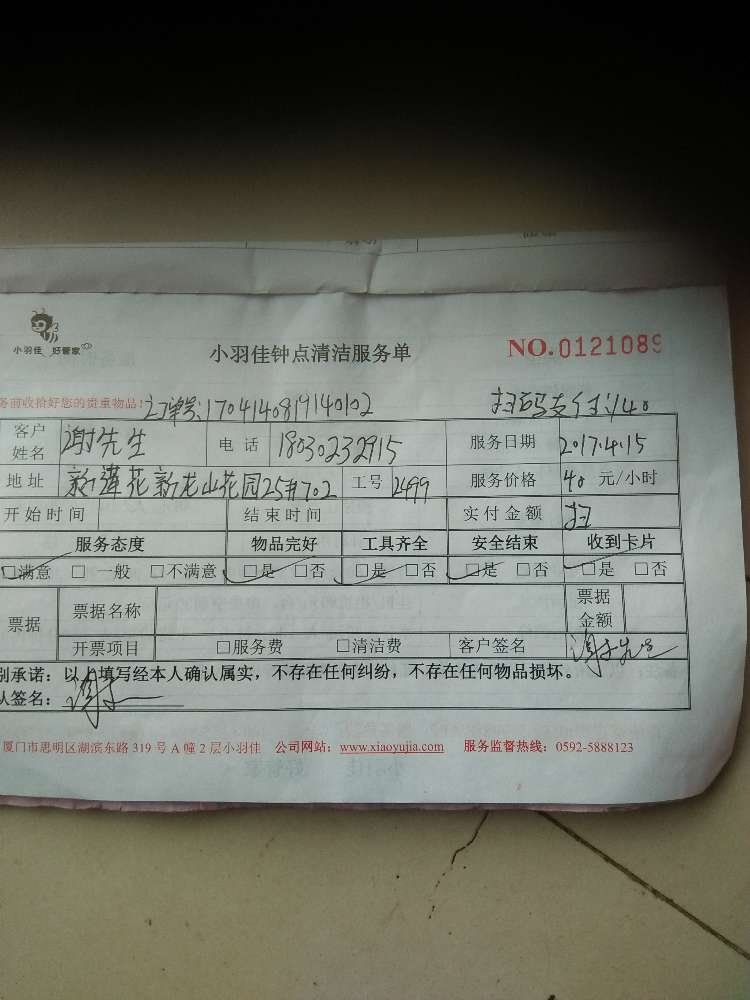 小羽佳 好管家
小羽佳钟点清洁服务单
NO.0121089
务前收拾好您的贵重物品! 订单号:1704140819140102 扫码支付:140
客户姓名 谢先生 电话 18030232915 服务日期 2017.4.15
地址 新莲花新龙山花园25#702 工号 2499 服务价格 40 元/小时
开始时间 结束时间 实付金额 扫
服务态度 物品完好 工具齐全 安全结束 收到卡片
□满意 □一般 □不满意 □是 □否 □是 □否 □是 □否 □是 □否
票据 票据名称 票据金额
开票项目 □服务费 □清洁费 客户签名 谢先生
别承诺：以上填写经本人确认属实，不存在任何纠纷，不存在任何物品损坏。
人签名：
厦门市思明区湖滨东路 319 号 A 幢 2 层小羽佳 公司网站：www.xiaoyujia.com 服务监督热线：0592-5888123